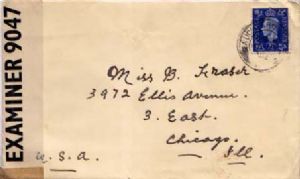 EXAMINER 9047
Miss B. Fraser
3972 Ellis Avenue.
3. East.
Chicago.
U.S.A. Ill.